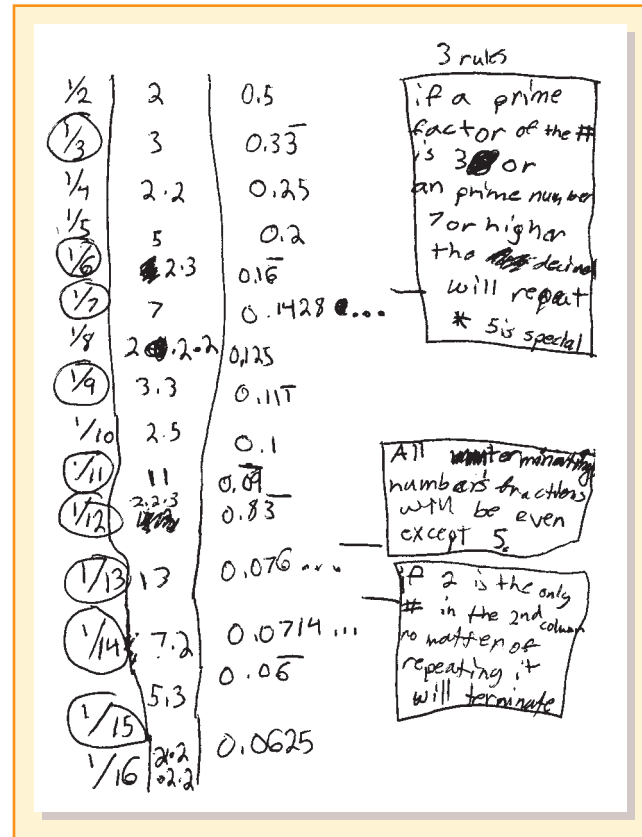 3 rules
1/2 2 0.5
1/3 3 0.33̅
1/4 2·2 0.25
1/5 5 0.2
1/6 2·3 0.16̅
1/7 7 0.1428 ...
1/8 2·2·2 0.125
1/9 3.3 0.111̅
1/10 2.5 0.1
1/11 11 0.0̅9̅
1/12 2.2.3 0.83̅
1/13 13 0.076...
1/14 7.2 0.0714...
1/15 5.3 0.06̅
1/16 2·2 0.0625
·2·2
if a prime
factor of the #
is 3 or
an prime number
7 or higher
the decimal
will repeat
* 5 is special
All terminating
numbers fractions
will be even
except 5.
if 2 is the only
# in the 2nd column
no matter of
repeating it
will terminate